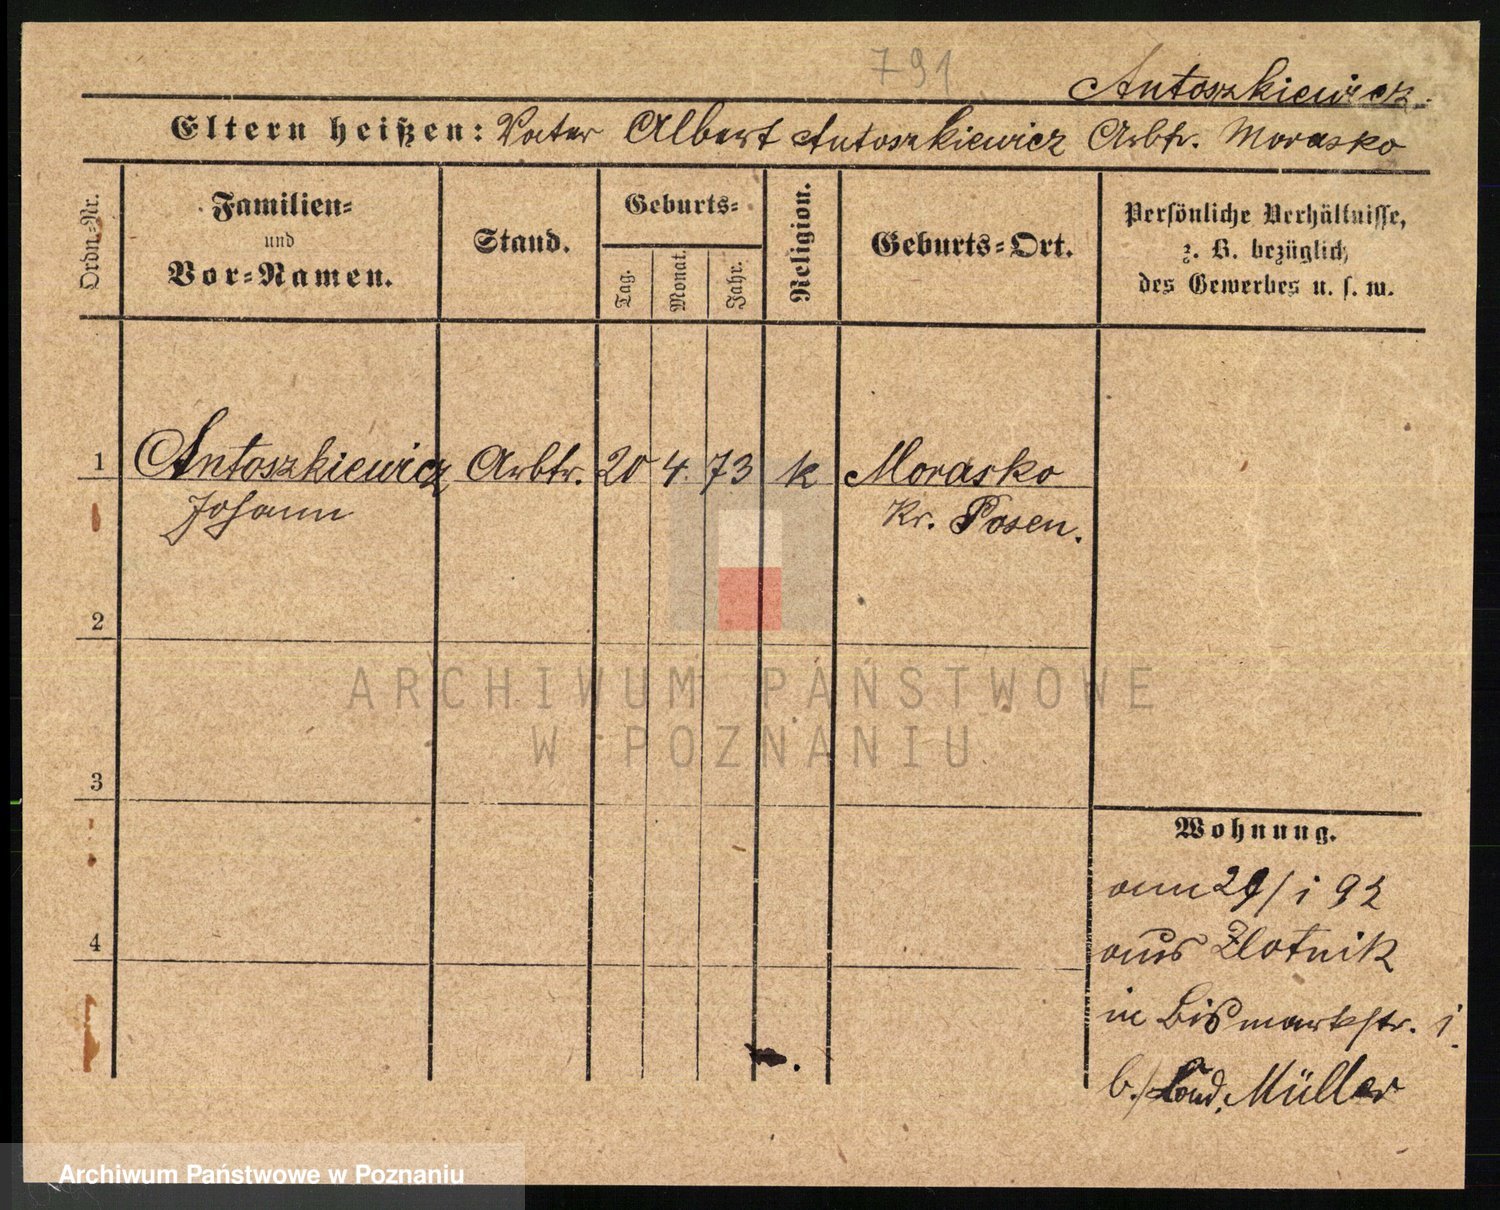 791
Antoszkiewicz.
Eltern heißen: Vater Albert Antoszkiewicz Arbtr. Morasko
Ordn.-Nr.
Familien-
und
Vor-Namen.
Stand.
Geburts-
Tag.
Monat.
Jahr.
Religion.
Geburts-Ort.
Persönliche Verhältnisse,
z. B. bezüglich
des Gewerbes u. s. w.
1 Antoszkiewicz Arbtr. 20 4. 73 k Morasko
Johann Kr. Posen.
2
ARCHIWUM PAŃSTWOWE
W POZNANIU
3
Wohnung.
am 29/1 92
aus Zlotnik
4
in Bismarkstr. 1.
b./ Müller
Archiwum Państwowe w Poznaniu